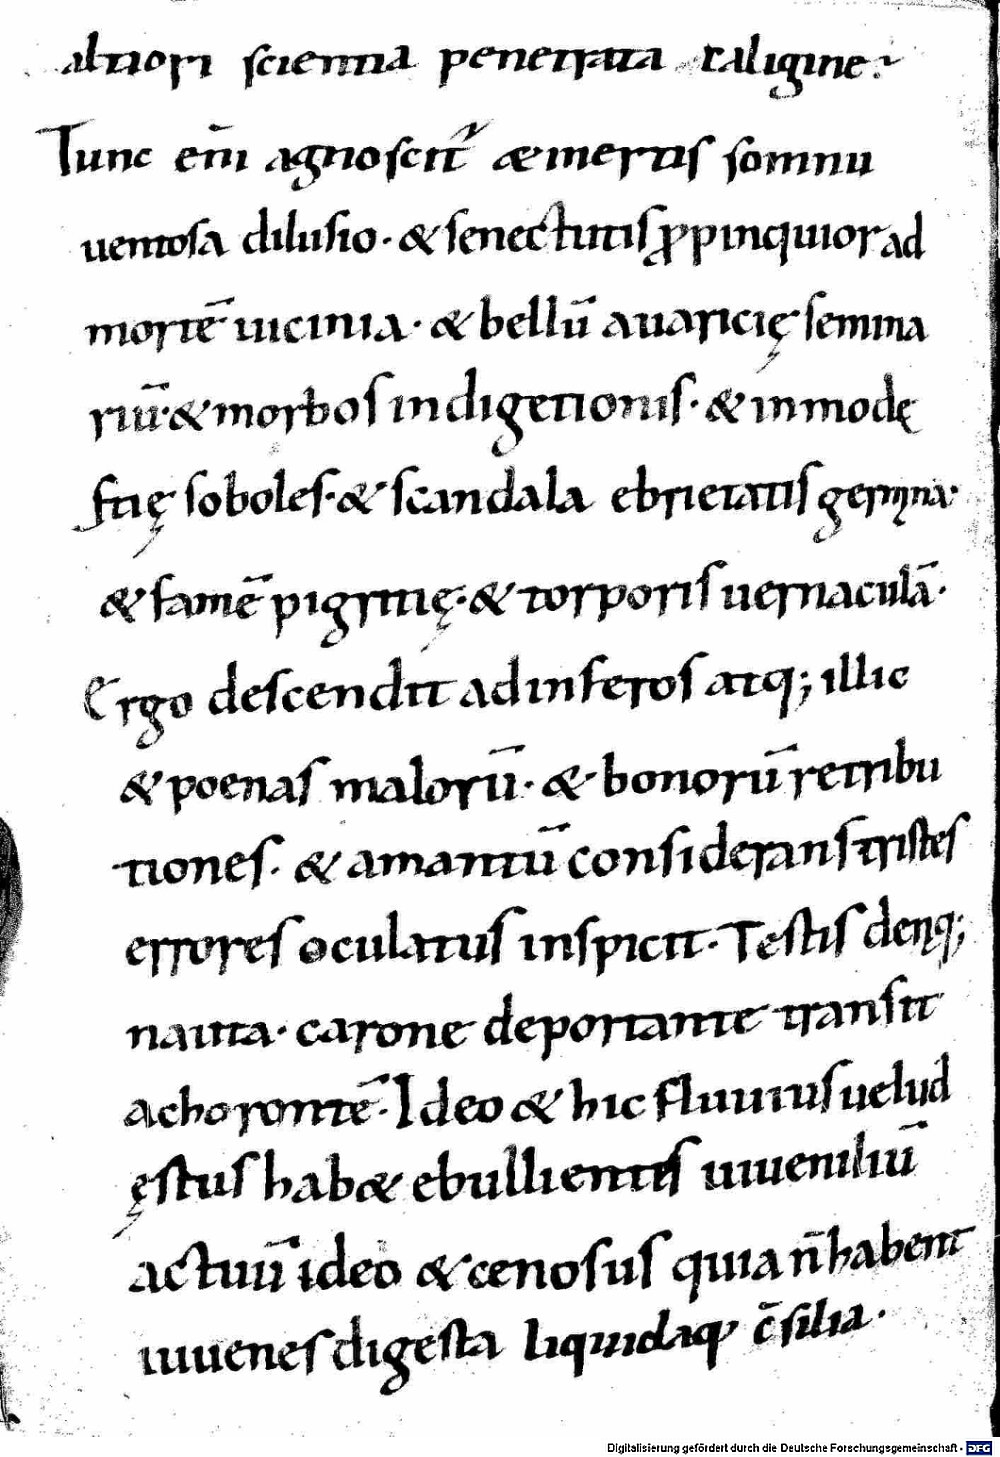 altiori scientia penetrata caligine.
Tunc eni̅ agnoscit᷑ & inertis somnu
uentosa dilusio · & senectutis ꝓpinquior ad
morte̅ uicinia · & bellu̅ auaricię semina
riu̅ · & morbos indigetionis · & inmodę
stię soboles · & scandala ebrietatis germina ·
& fame̅ pigritię · & torporis uernacula̅ ·
Ergo descendit ad inferos atq; illic
& poenas maloru̅ · & bonoru̅ retribu
tiones · & amantu̅ considerans tristes
errores oculatus inspicit · Testis deniq;
nauita · carone deportante transit
achoronte̅ · Ideo & hic fluuius uelud
ęstus hab& ebullientis iuueniliu̅
actuu̅ ideo & cenosus quia n̅ habent
iuuenes digesta liquidaq; c̅silia ·
Digitalisierung gefördert durch die Deutsche Forschungsgemeinschaft - DFG